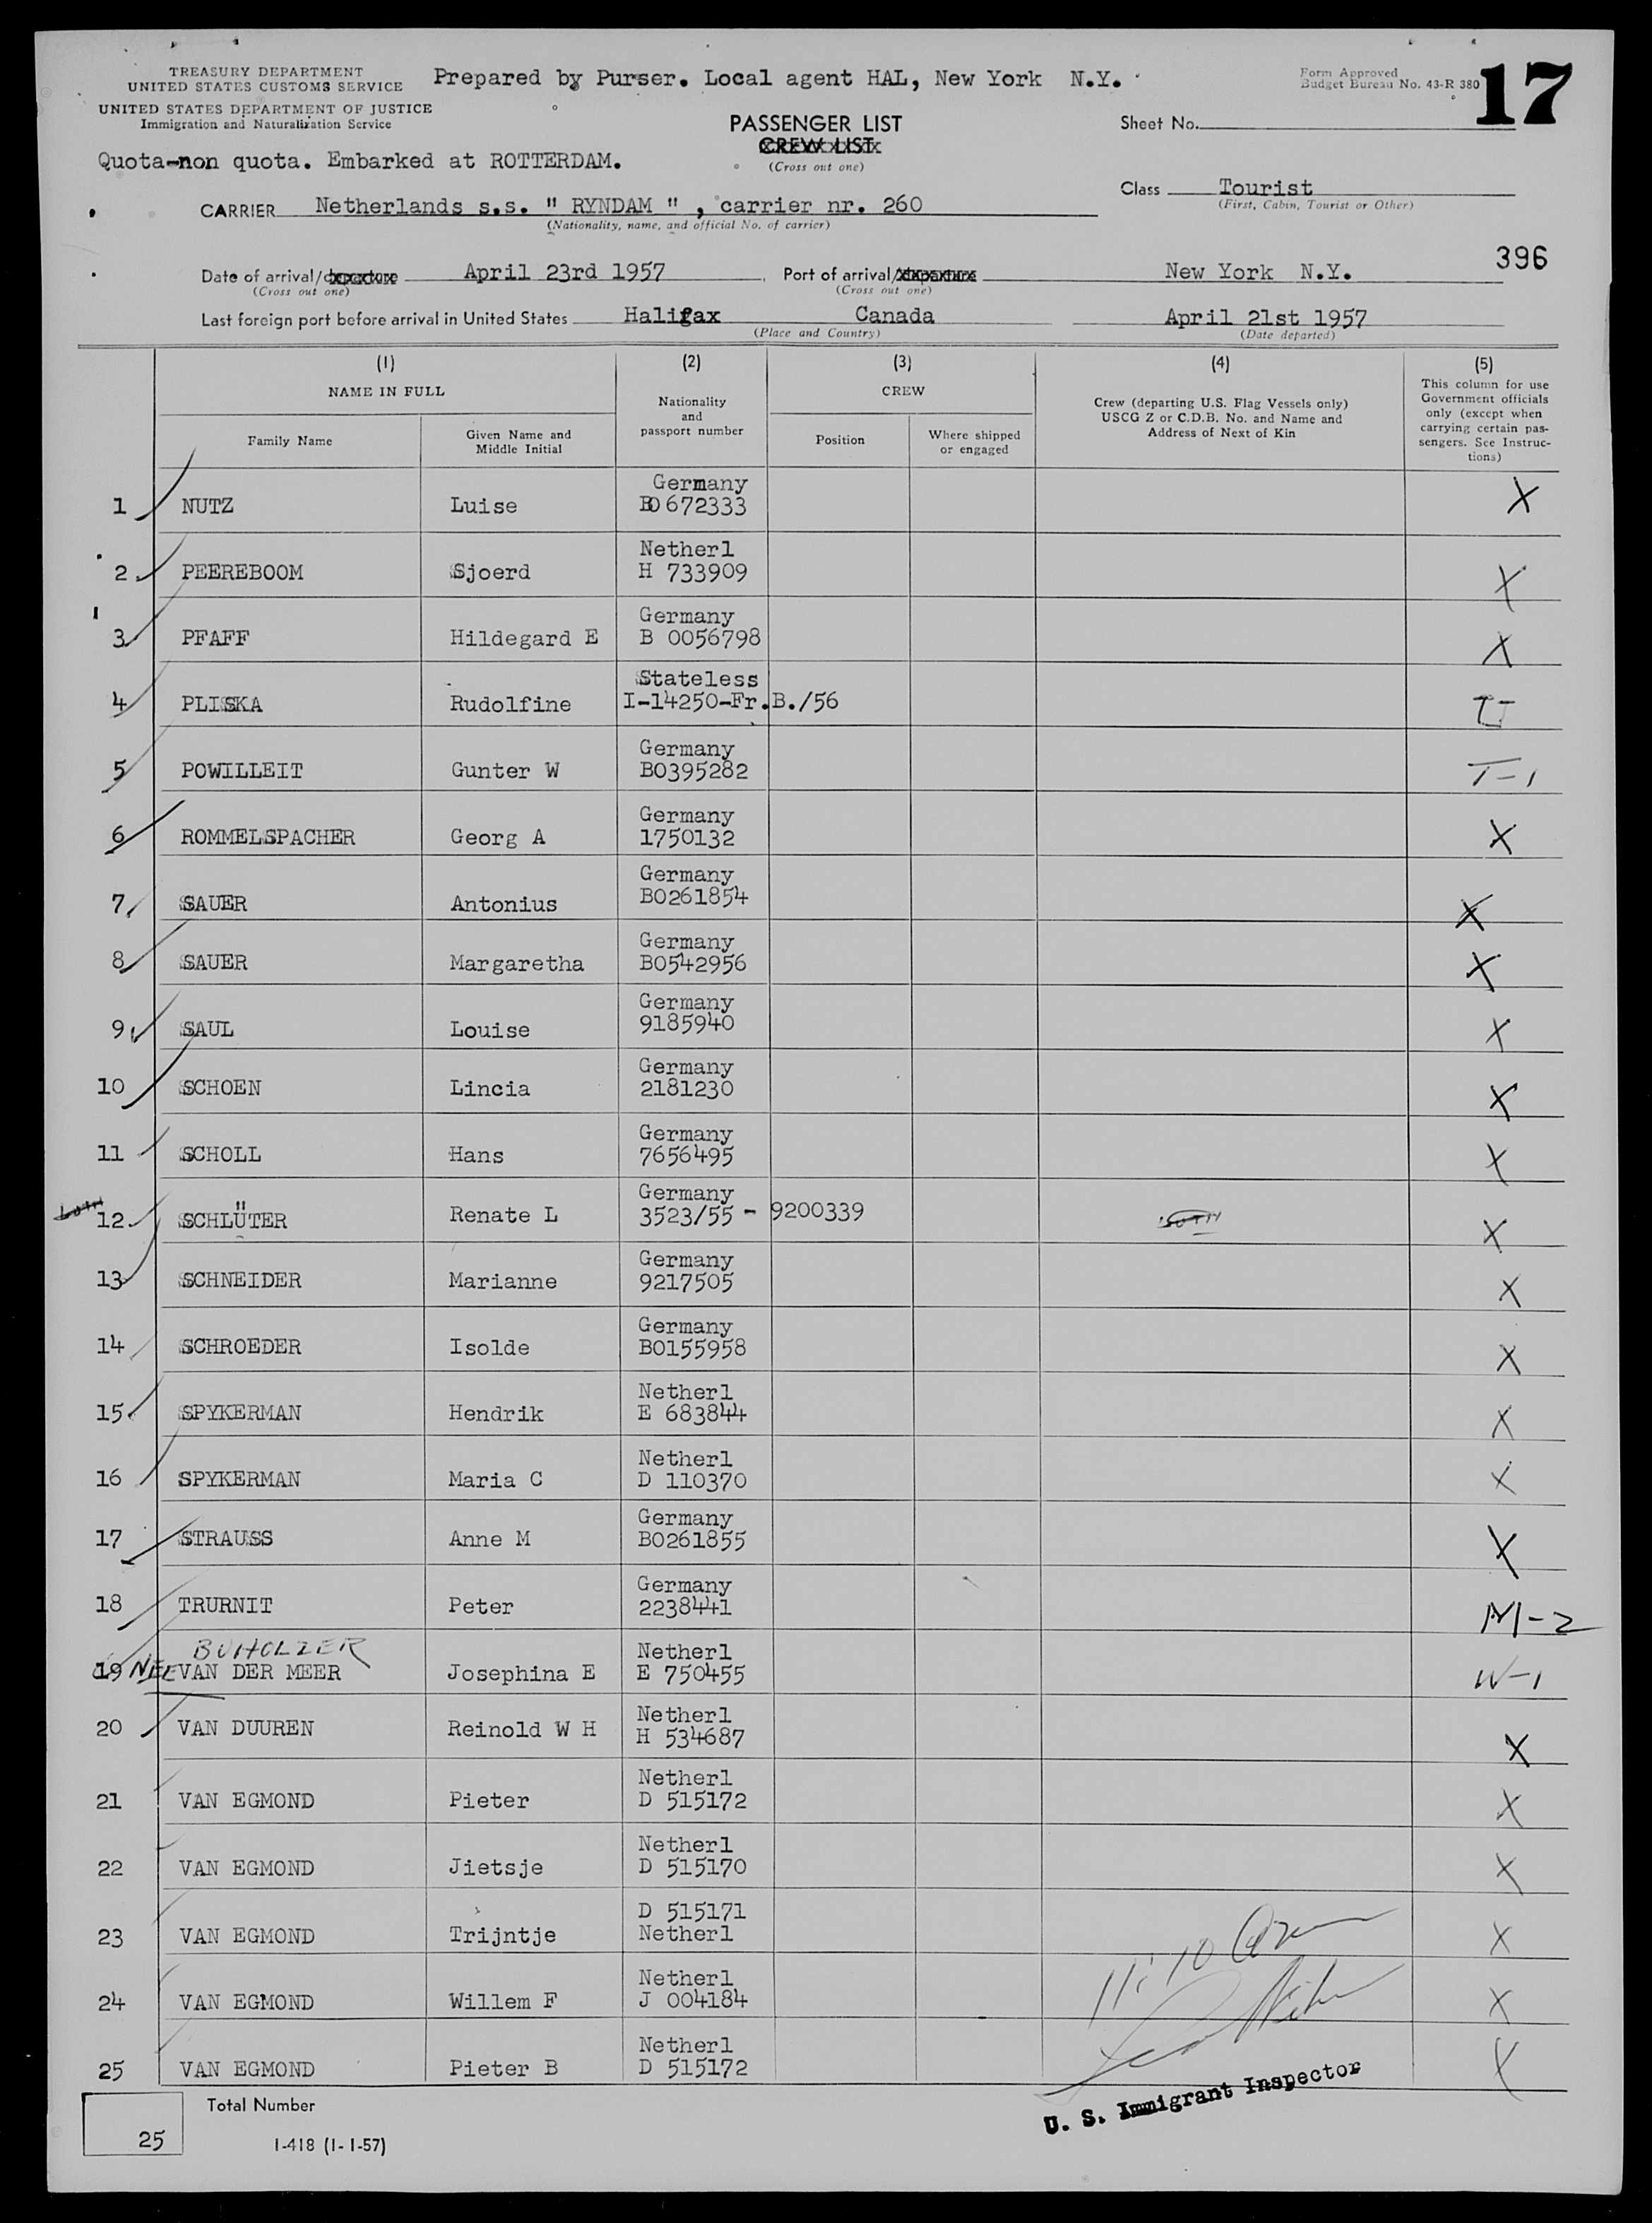 TREASURY DEPARTMENT
UNITED STATES CUSTOMS SERVICE
UNITED STATES DEPARTMENT OF JUSTICE
Immigration and Naturalization Service
Prepared by Purser. Local agent HAL, New York N.Y.
Form Approved
Budget Bureau No. 43-R 380
17
PASSENGER LIST
CREW LIST
(Cross out one)
Sheet No.
Quota-non quota. Embarked at ROTTERDAM.
Class Tourist
(First, Cabin, Tourist or Other)
CARRIER Netherlands s.s. " RYNDAM " , carrier nr. 260
(Nationality, name, and official No. of carrier)
396
Date of arrival/departure April 23rd 1957 Port of arrival/departure New York N.Y.
(Cross out one) (Cross out one)
Last foreign port before arrival in United States Halifax Canada April 21st 1957
(Place and Country) (Date departed)
(1) (2) (3) (4) (5)
NAME IN FULL
Family Name
Given Name and Middle Initial
Nationality and passport number
CREW
Position
Where shipped or engaged
Crew (departing U.S. Flag Vessels only) USCG Z or C.D.B. No. and Name and Address of Next of Kin
This column for use Government officials only (except when carrying certain passengers. See Instructions)
1 NUTZ Luise Germany B0672333 X
2 PEEREBOOM Sjoerd Netherl H 733909 X
3 PFAFF Hildegard E Germany B 0056798 X
4 PLISKA Rudolfine Stateless I-14250-Fr.B./56
5 POWILLEIT Gunter W Germany B0395282 T-1
6 ROMMELSPACHER Georg A Germany 1750132 X
7 SAUER Antonius Germany B0261854 X
8 SAUER Margaretha Germany B0542956 X
9 SAUL Louise Germany 9185940 X
10 SCHOEN Lincia Germany 2181230 X
11 SCHOLL Hans Germany 7656495 X
12 SCHLÜTER Renate L Germany 3523/55 - 9200339 X
13 SCHNEIDER Marianne Germany 9217505 X
14 SCHROEDER Isolde Germany B0155958 X
15 SPYKERMAN Hendrik Netherl E 683844 X
16 SPYKERMAN Maria C Netherl D 110370 X
17 STRAUSS Anne M Germany B0261855 X
18 TRURNIT Peter Germany 2238441 M-2
BUHOLZER
19 NEE VAN DER MEER Josephina E Netherl E 750455 W-1
20 VAN DUUREN Reinold W H Netherl H 534687 X
21 VAN EGMOND Pieter Netherl D 515172 X
22 VAN EGMOND Jietsje Netherl D 515170 X
23 VAN EGMOND Trijntje D 515171 Netherl X
24 VAN EGMOND Willem F Netherl J 004184 X
25 VAN EGMOND Pieter B Netherl D 515172 X
11:10 am
U. S. Immigrant Inspector
Total Number
25
I-418 (1-1-57)